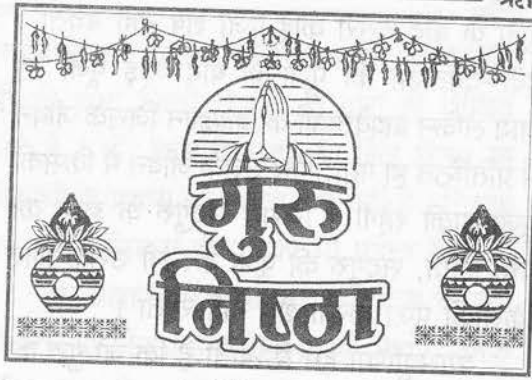 गुरु
निष्ठा